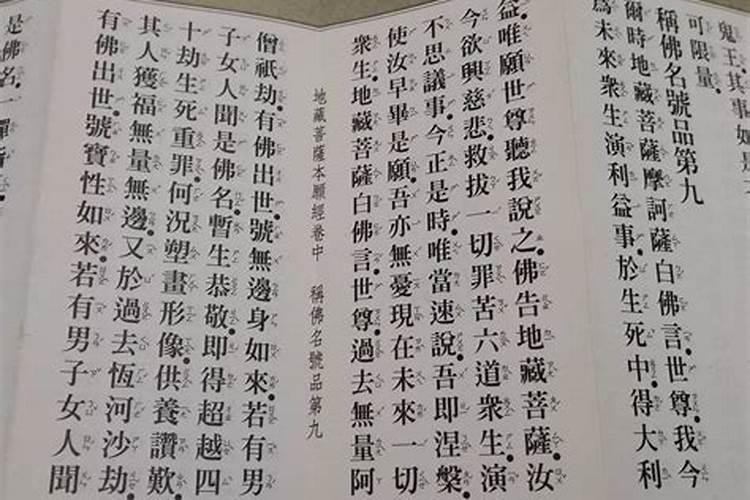 鬼王其事如是
可限量。
稱佛名號品第九
爾時地藏菩薩摩訶薩白佛言。世尊。我今
爲未來衆生演利益事。於生死中。得大利
益。唯願世尊聽我說之。佛告地藏菩薩。汝
今欲興慈悲。救拔一切罪苦六道衆生。演
不思議事。今正是時。唯當速說。吾即涅槃。
使汝早畢是願。吾亦無憂現在未來一切
衆生。地藏菩薩白佛言。世尊。過去無量阿
地藏菩薩本願經卷中 稱佛名號品第九
僧祇劫。有佛出世。號無邊身如來。若有男
子女人聞是佛名。暫生恭敬。即得超越四
十劫生死重罪。何況塑畫形像。供養讚歎。
其人獲福無量無邊。又於過去恆河沙劫。
有佛出世。號寶性如來。若有男子女人聞
是佛名。一彈